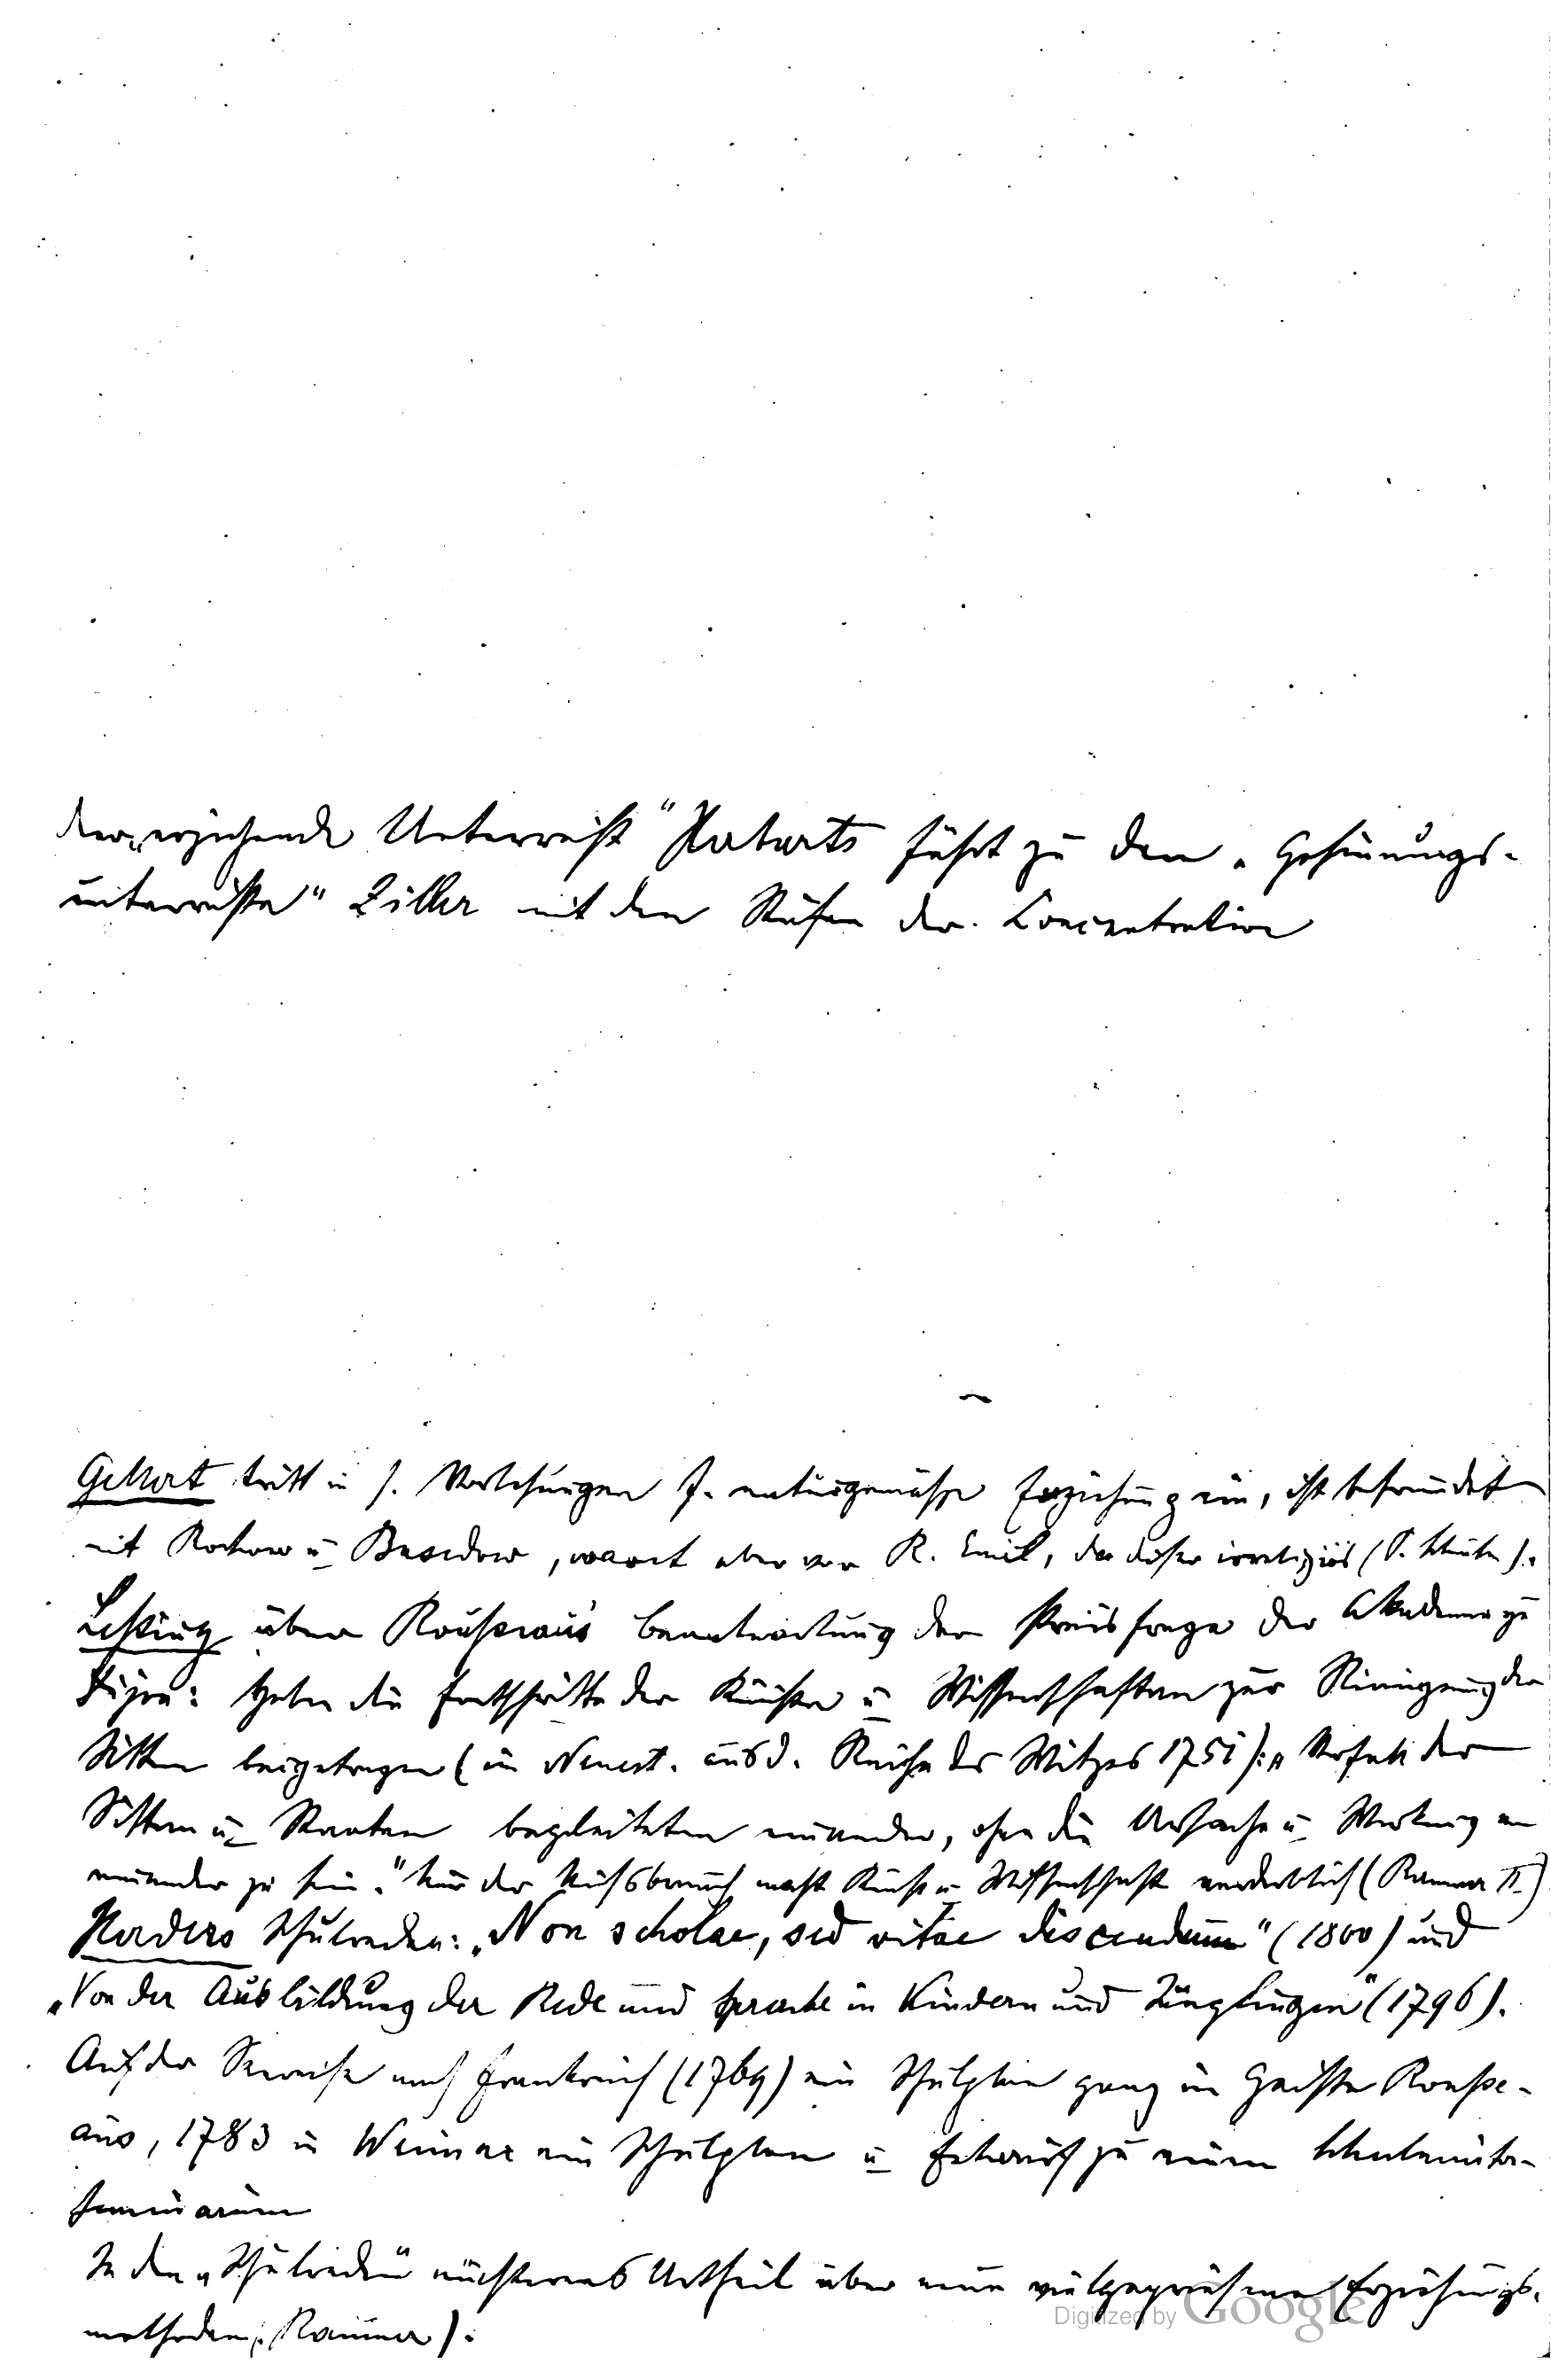 der „erziehende Unterricht“ Herbarts führt zu dem „Gesinnungs-
unterrichte“ Ziller mit den Stufen der Concentration
Gellert tritt in s. Vorlesungen f. naturgemäße Erziehung ein, ist befreundet
mit Rochow u Basedow, warnt aber vor R. Emil, da dieser irreligiös
Lessing über Rousseaus Beantwortung der Preisfrage der Akademie zu
Dijon: Haben die Fortschritte der Künste u Wissenschaften zur Reinigung der
Sitten beigetragen (in Neuest. aus d. Reiche des Witzes 1751): „Verfall der
Sitten u Staaten begleiteten einander, ohne die Ursache u Wirkung von
einander zu sein.“ Nur der Mißbrauch macht Kunst u Wissenschaft verderblich (Raumer II.)
Herders Schulreden: „Non scholae, sed vitae discendum“ (1800) und
„Von der Ausbildung der Rede und Sprache in Kindern und Jünglingen“ (1796).
Auf der Seereise nach Frankreich (1769) ein Schulplan ganz im Geiste Rousse-
aus, 1783 in Weimar ein Schulplan u Entwurf zu einem Schulmeister-
seminarium
In den „Schulreden“ nüchternes Urtheil über neue vielgepriesene Erziehungs-
methoden (Raumer).
Digitized by Google